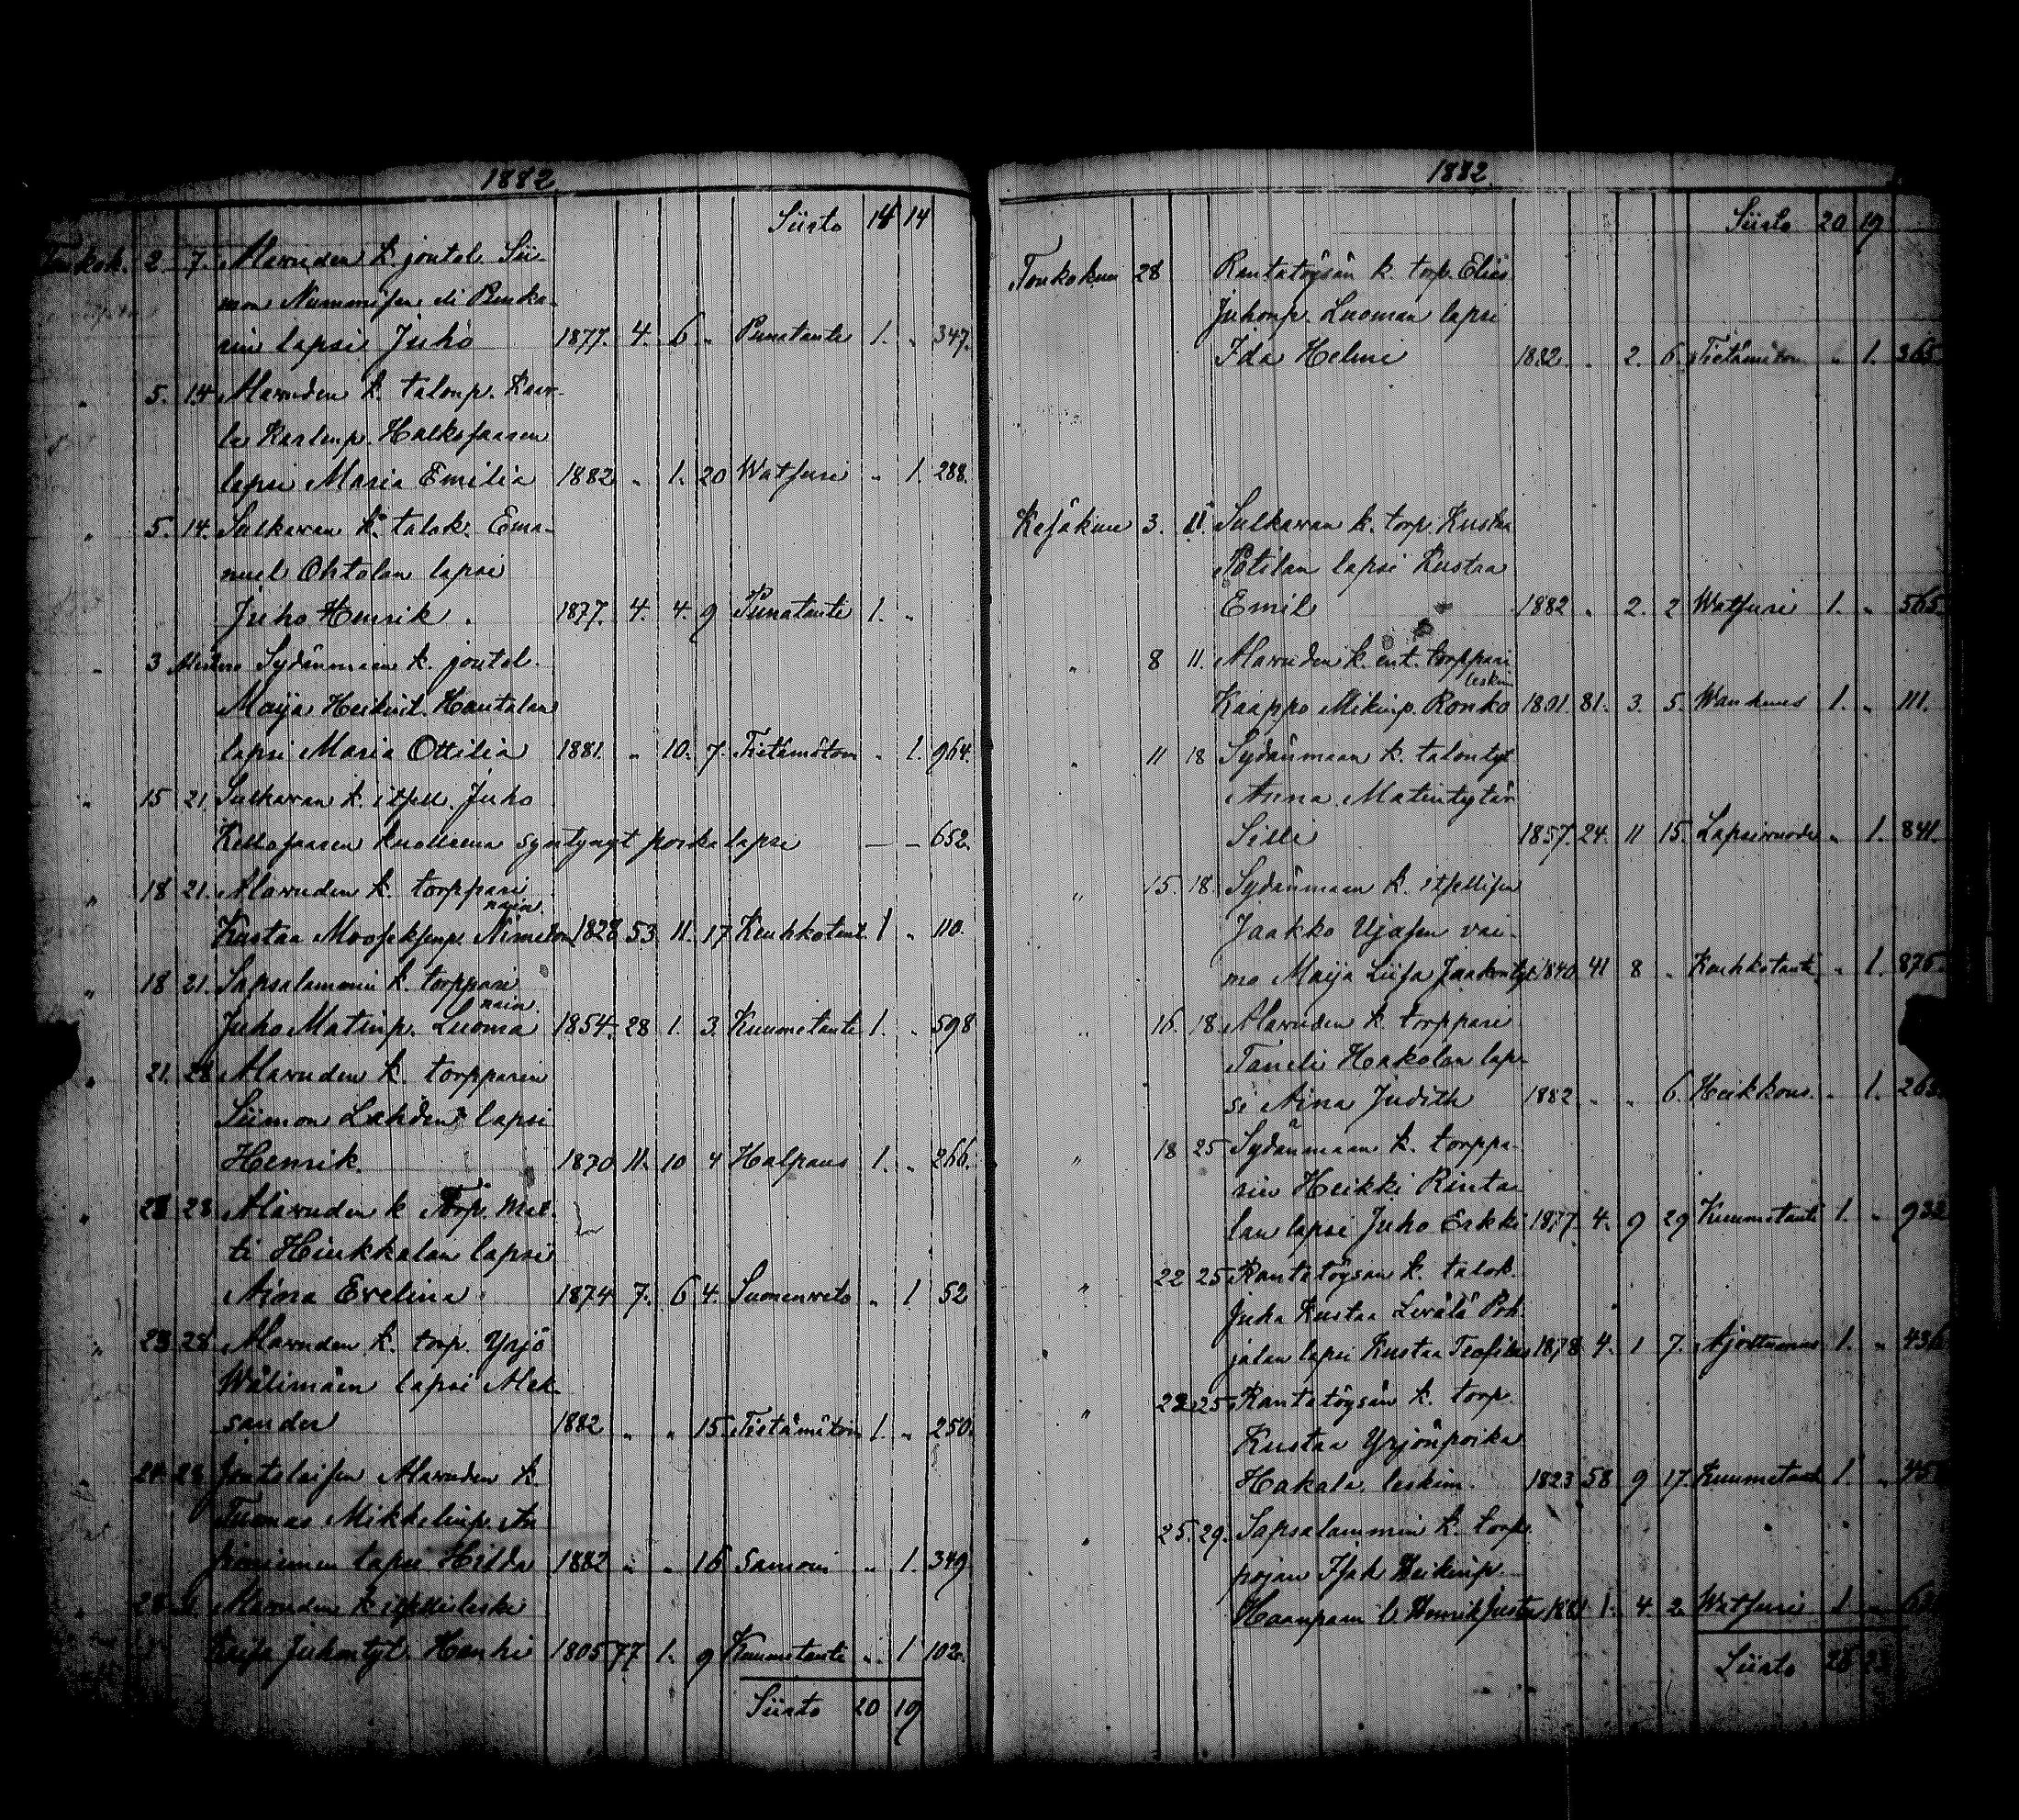 1882
Siirto 14 14
Toukok. 2. 7. Alavuden k. joutol. Sii-
mon Nummisen eli Punka-
rin lapsi Juho 1877. 4. 6. „ Punatauti 1. „ 347.
„ 5. 14. Alavuden k. talonp. Kaar-
le Kaarlenp. Halkosaaren
lapsi Maria Emilia 1882 „ 1. 20 Watsuri „ 1. 288.
„ 5. 14. Sulkavan k. talok. Ema-
nuel Ohtolan lapsi
Juho Henrik. 1877. 4. 4. 9 Punatauti 1. „
„ 3 Sydänmaan k. joutol.
Maija Heikint. Hautalan
lapsi Maria Ottilia 1881. „ 10. 7. Tietämätön „ 1. 964.
„ 15 21. Sulkavan k. itsell. Juho
Kellosaaren kuolleena syntynyt poika lapsi — — 652.
„ 18 21. Alavuden k. torppari
nain.
Kustaa Mooseksenp. Nimeton 1828 53 11. 17 Keuhkotaut. 1 „ 110.
„ 18 21. Sapsalammin k. torppari
nain.
Juho Matinp. Luoma 1854. 28 1. 3. Kuumetauti 1. „ 598
„ 21. 28 Alavuden k. torpparin
Siimon Lahden lapsi
Henrik. 1870 11. 10 4 Halpaus 1. „ 266.
„ 28 28 Alavuden k Torp. Mat-
ti Hiukkalan lapsi
Aina Evelina. 1874 7. 6 4. Suonenveto „ 1 52
„ 23 28 Alavuden k. torp. Yrjö
Wälimäen lapsi Alek-
sander 1882 „ „ 15. Tietämätön 1. „ 250.
24 28 Joutolaisen Alavuden k.
Tuomas Mikkelinp. An
lapsi Hilda 1882 „ „ 16 Samoin „ 1. 349
28 Alavuden k itsellisleski
Kaisa Juhontyt. Hanhi 1805 77 1. 9 Kuumetauti „ 1 102.
Siirto 20 19
1882.
Siirto 20 19
Toukokuu 28 Rantatöysän k. torp. Elias
Juhonp. Luoman lapsi
Ida Helmi 1882. „ 2. 6. Tietämätön „ 1. 365
Kesäkuu 3. 11. Sulkavan k. torp. Kustaa
Potilan lapsi Kustaa
Emil 1882 „ 2. 2 Watsuri 1. „ 565
„ 8 11. Alavuden k. ent. torppari
leskim
Kaappo Mikinp. Ronko 1801. 81. 3. 5. Wanhuus 1. „ 111.
„ 11 18 Sydänmaan k. talontyt
Anna Matintytär
Silli 1857. 24. 11 15. Lapsivuode „ 1. 841.
„ 15. 18. Sydänmaan k. itsellisen
Jaakko Ujasen vai-
mo Maija Liisa Jaakontyt. 1840. 41 8 „ Keuhkotauti „ 1. 875.
„ 16. 18. Alavuden k. torppari
Taneli Hakolan lap-
si Aina Judith 1882. „ „ 6. Heikkous. „ 1. 263.
„ 18 25 Sydänmaan k. torppa-
rin Heikki Rinta-
lan lapsi Juho Erkki 1877. 4. 9 29 Kuumetauti 1. „ 932
„ 22 25 Rantatöysän k. talok.
Juha Kustaa Leväla Poh-
jalan lapsi Kustaa Teofilus 1878. 4. 1 7. Ajottumus 1. „ 436
„ 22 25 Rantatöysän k. torp.
Kustaa Yrjönpoika
Hakala leskim. 1823 58 9 17. Kuumetauti 1. „
„ 25. 29. Sapsalammin k. torp.
pojan Isak Heikinp.
Haanpään l. Henrik Justus 1881 1. 4. 2 Watsuri 1. „
Siirto 28 23